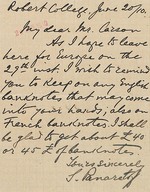 Robert College, June 20/10.
My dear Mr. Carson
As I hope to leave
here for Europe on the
29th inst. I wish to remind
you to keep on any English
banknotes that may come
into your hands; also on
French banknotes. I shall
be glad to get about £40
or 45 £ of banknotes
Yours sincerely
S. Panaretoff